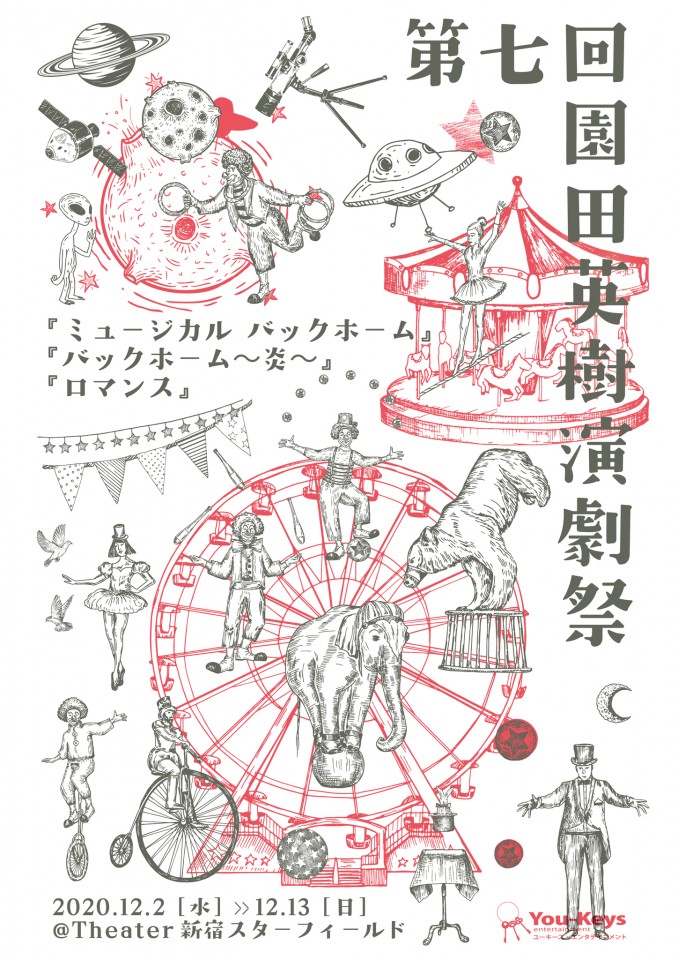 第七回園田英樹演劇祭
『ミュージカル バックホーム』
『バックホーム〜炎〜』
『ロマンス』
2020.12.2［水］≫12.13［日］
@Theater新宿スターフィールド
You-Keys
entertainment
ユーキース・エンタテインメント